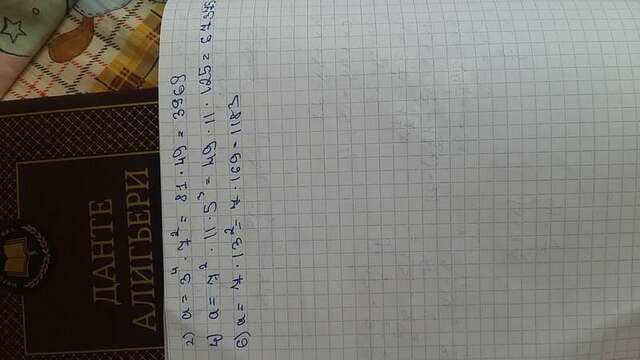 ДАНТЕ
АЛИГЬЕРИ
2) a = 3⁴ · 7² = 81 · 49 = 3969
4) a = 7² · 11 · 5³ = 49 · 11 · 125 = 67375
6) a = 7 · 13² = 7 · 169 = 1183